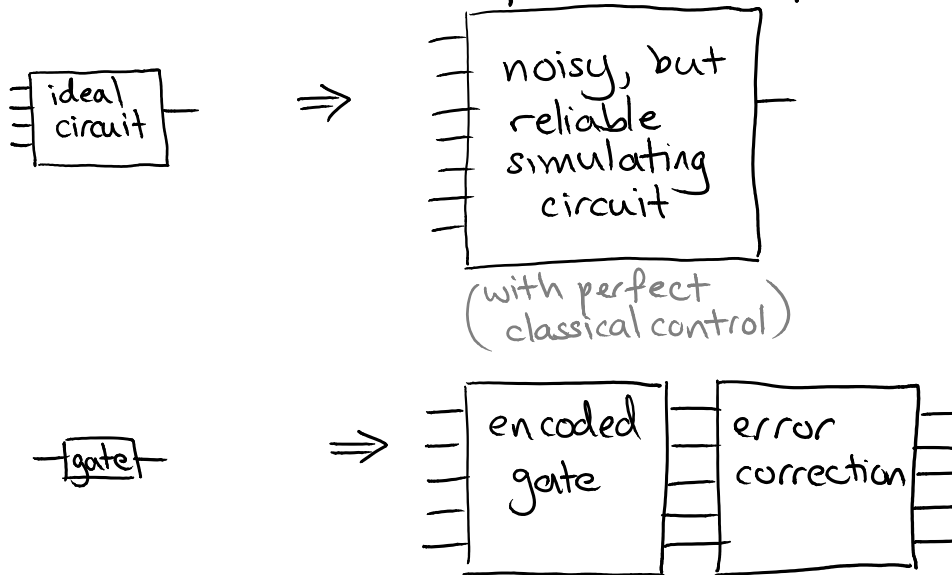 ideal
circuit
noisy, but
reliable
simulating
circuit
(with perfect
classical control)
gate
encoded
gate
error
correction